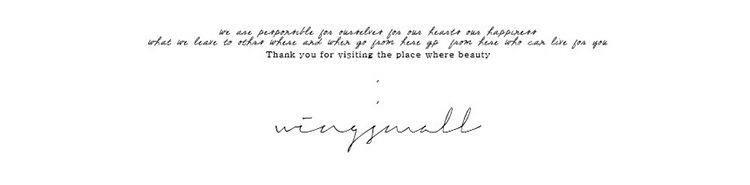 we are personsible for ourselves for our hearts our happiness
what we leave to othrs where and when go from here go from here who can live for you
Thank you for visiting the place where beauty
wingsmall